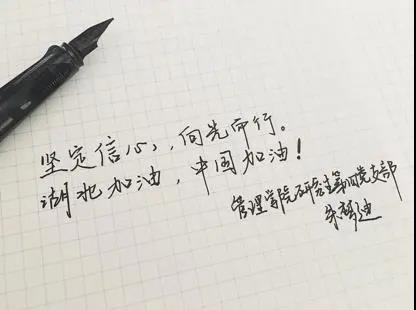 坚定信心，向光而行。
湖北加油，中国加油！
管理学院研究生第四党支部
朱梦迪